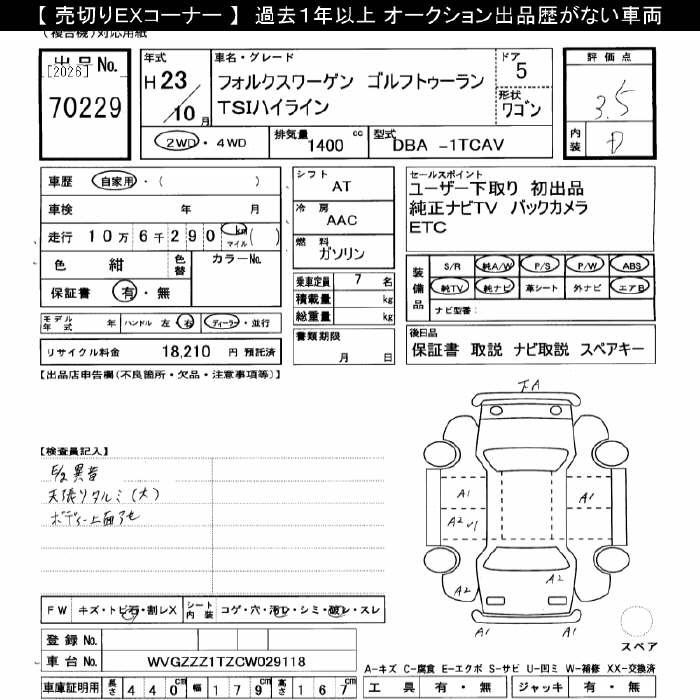 【 売切りEXコーナー 】 過去1年以上 オークション出品歴がない車両
(複合機)対応用紙
出品No.
[2026]
70229
年式
H 23
10 月
車名・グレード
フォルクスワーゲン ゴルフトゥーラン
TSIハイライン
ドア
5
形状
ワゴン
2WD ・ 4WD
排気量 1400 cc
型式 DBA -1TCAV
評価点
3.5
内装 D
車歴 自家用 ・( )
車検 年 月
走行 10万6千290 km マイル ( )
色 紺 色替 カラーNo.
保証書 有・無
モデル年式 年 ハンドル 左 右 ディーラー・並行
リサイクル料金 18,210 円 預託済
シフト AT
冷房 AAC
燃料 ガソリン
乗車定員 7 名
積載量 kg
総重量 kg
書類期限
月 日
セールスポイント
ユーザー下取り 初出品
純正ナビTV バックカメラ
ETC
装備品
S/R 純A/W P/S P/W ABS
純TV 純ナビ 革シート 外ナビ エアB
ナビ型番:
後日品
保証書 取説 ナビ取説 スペアキー
【出品店申告欄(不良箇所・欠品・注意事項等)】
【検査員記入】
E/g異音
天張りタルミ(大)
ボディー上面
下A
A1
A2
A1
A2
A2
A2
A1
A1
スペア
FW キズ・トビ石・割レX シート内装 コゲ・穴・汚レ・シミ・破レ・スレ
登録No.
車台No. WVGZZZ1TZCW029118
車庫証明用 長さ 440cm 幅 179cm 高さ 167cm
A-キズ C-腐食 E-エクボ S-サビ U-凹ミ W-補修 XX-交換済
工具 有・無 ジャッキ 有・無